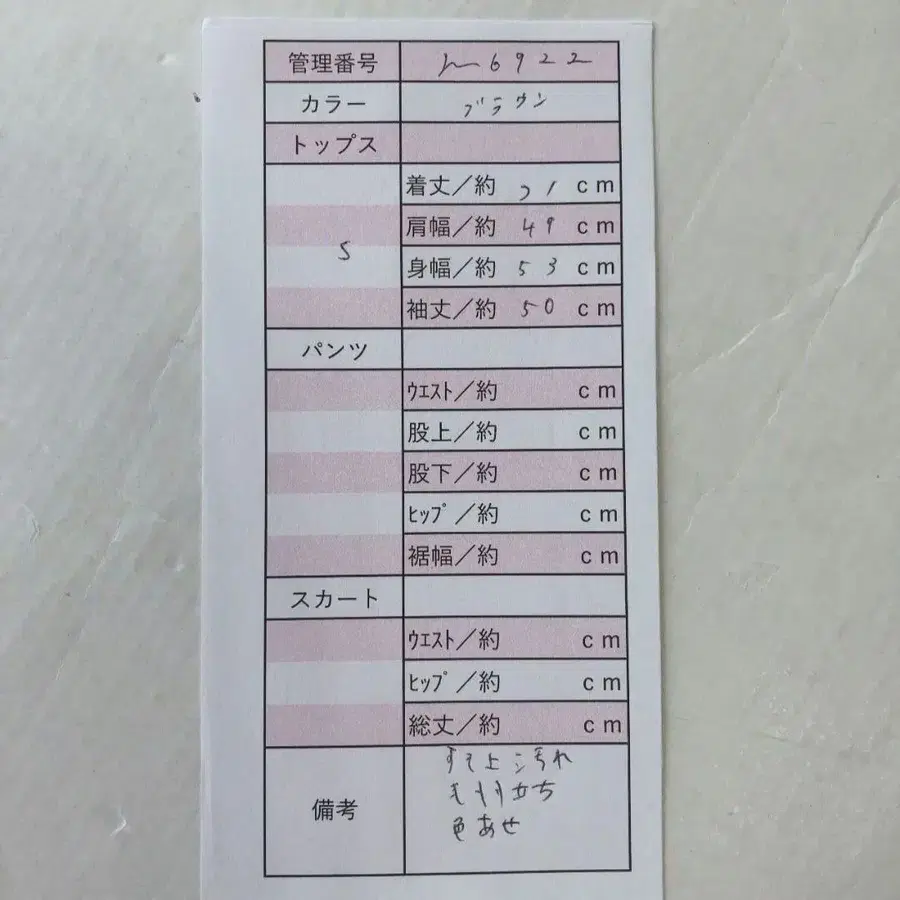 管理番号 h6922
カラー ブラウン
トップス
S
着丈／約 71 cm
肩幅／約 49 cm
身幅／約 53 cm
袖丈／約 50 cm
パンツ
ｳｴｽﾄ／約 cm
股上／約 cm
股下／約 cm
ﾋｯﾌﾟ／約 cm
裾幅／約 cm
スカート
ｳｴｽﾄ／約 cm
ﾋｯﾌﾟ／約 cm
総丈／約 cm
備考
すそ上 汚れ
立ち
色あせ